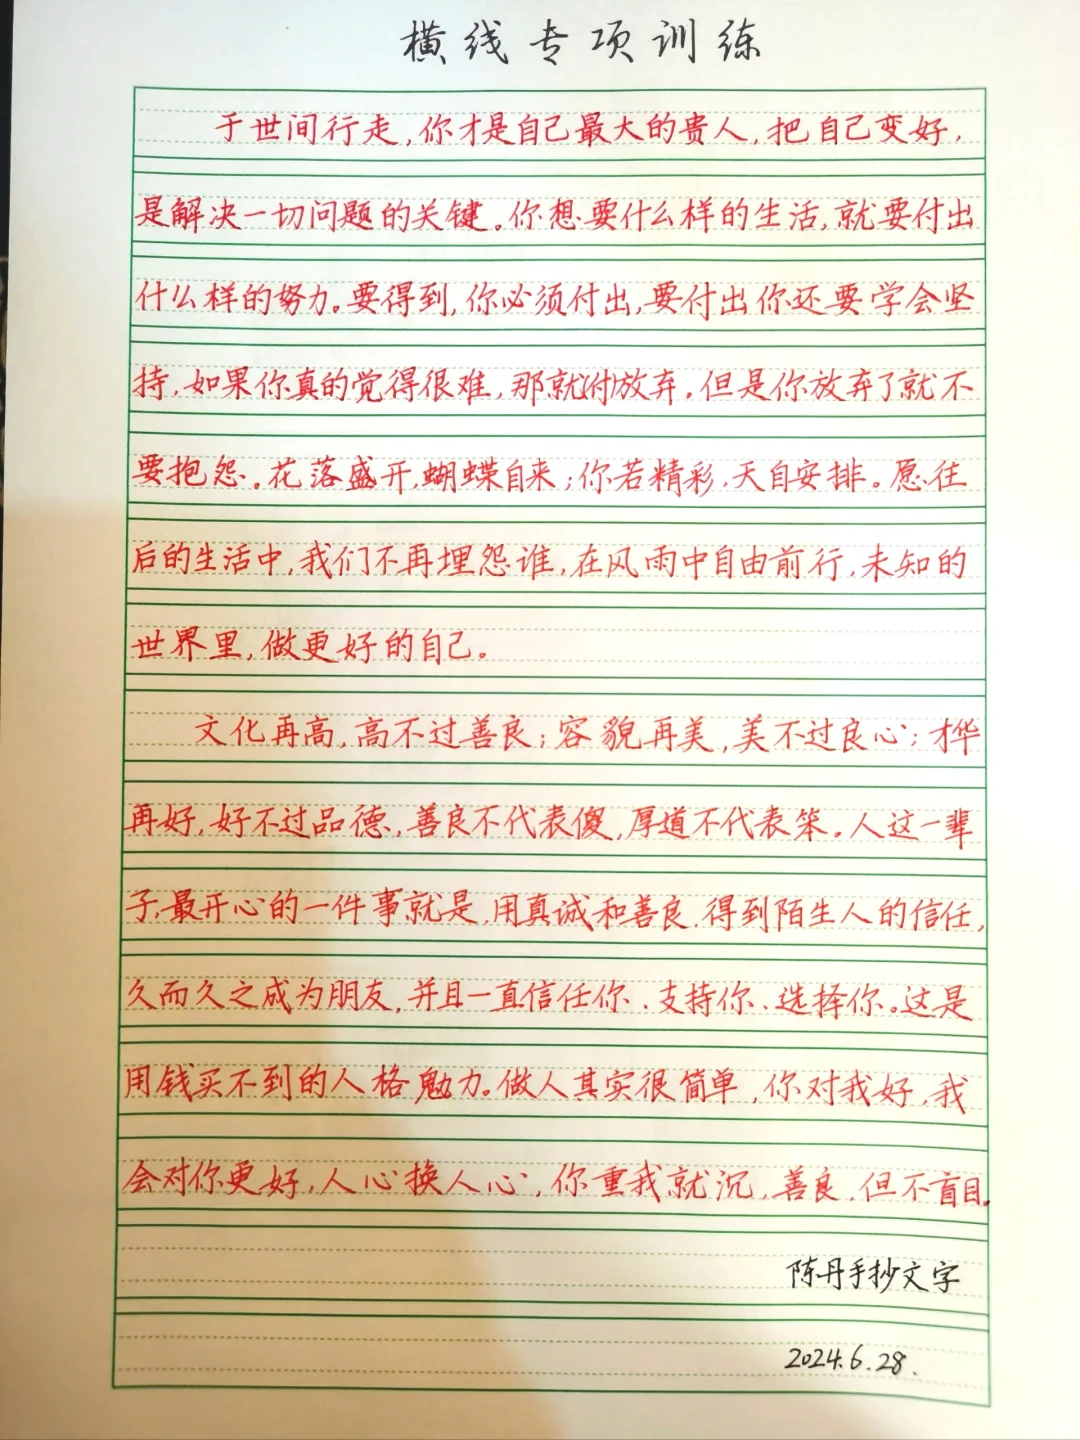 横线专项训练
于世间行走,你才是自己最大的贵人,把自己变好,
是解决一切问题的关键。你想要什么样的生活,就要付出
什么样的努力。要得到,你必须付出,要付出你还要学会坚
持,如果你真的觉得很难,那就(付)放弃。但是你放弃了就不
要抱怨。花落盛开,蝴蝶自来;你若精彩,天自安排。愿往
后的生活中,我们不再埋怨谁,在风雨中自由前行,未知的
世界里,做更好的自己。
文化再高,高不过善良;容貌再美,美不过良心;才华
再好,好不过品德,善良不代表傻,厚道不代表笨。人这一辈
子,最开心的一件事就是,用真诚和善良,得到陌生人的信任,
久而久之成为朋友,并且一直信任你、支持你、选择你。这是
用钱买不到的人格魅力。做人其实很简单,你对我好,我
会对你更好,人心换人心,你重我就沉,善良,但不盲目。
陈丹手抄文字
2024.6.28.